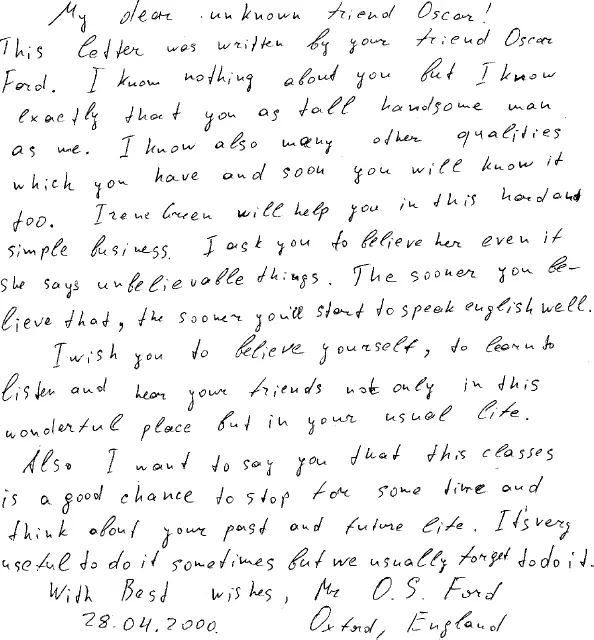 My dear unknown friend Oscar!
This letter was written by your friend Oscar
Ford. I know nothing about you but I know
exactly that you as tall handsome man
as me. I know also many other qualities
which you have and soon you will know it
too. Irene Green will help you in this hard and
simple business. I ask you to believe her even if
she says unbelievable things. The sooner you be-
lieve that, the sooner you'll start to speak english well.
I wish you to believe yourself, to learn to
listen and hear your friends not only in this
wonderful place but in your usual life.
Also I want to say you that this classes
is a good chance to stop for some time and
think about your past and future life. It's very
useful to do it sometimes but we usually forget to do it.
With Best wishes, Mr O.S. Ford
28.04.2000. Oxford, England